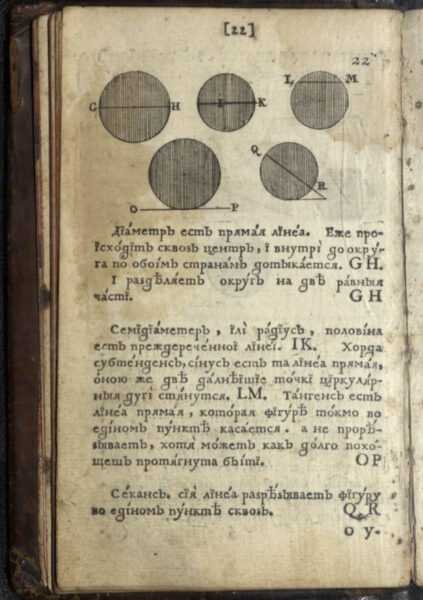 [22]
22
G H I K L M
O P Q R
Дїа́метръ есть пряма́я лїне́а. Еже про-
їсхо́дїтъ сквозь це́нтръ, ї внутрі́ до окру́-
га по̀ обоі́мъ страна́мъ дотыка́ется. G H.
І разделя́етъ окру́гъ на двѣ ра́вныя
ча́стї. G H
Семїдїа́метеръ, їлї ра́дїусъ, полові́на
есть преждерече́нноі лїнеї. I K. Хорда
субте́нденсъ, сі́нусъ есть та лїне́а пряма́я,
о́ною же двѣ да́лнѣїшїе то́чкї цїркуля́р-
ныя дугі́ стя́нутся. LM. Та́нгенсъ есть
лїне́а прямая, кото́рая фїгу́рѣ то́кмо во
едї́номъ пу́нктѣ каса́ется. а не прорѣ-
зываетъ, хотя̀ мо́жетъ какъ до́лго похо́-
щешъ протя́гнута бы́тї. O P
Се́кансъ. сїя̀ лїне́а разрѣ́зываетъ фїгу́ру
во едї́номъ пу́нктѣ сквозь. Q. R
о у.